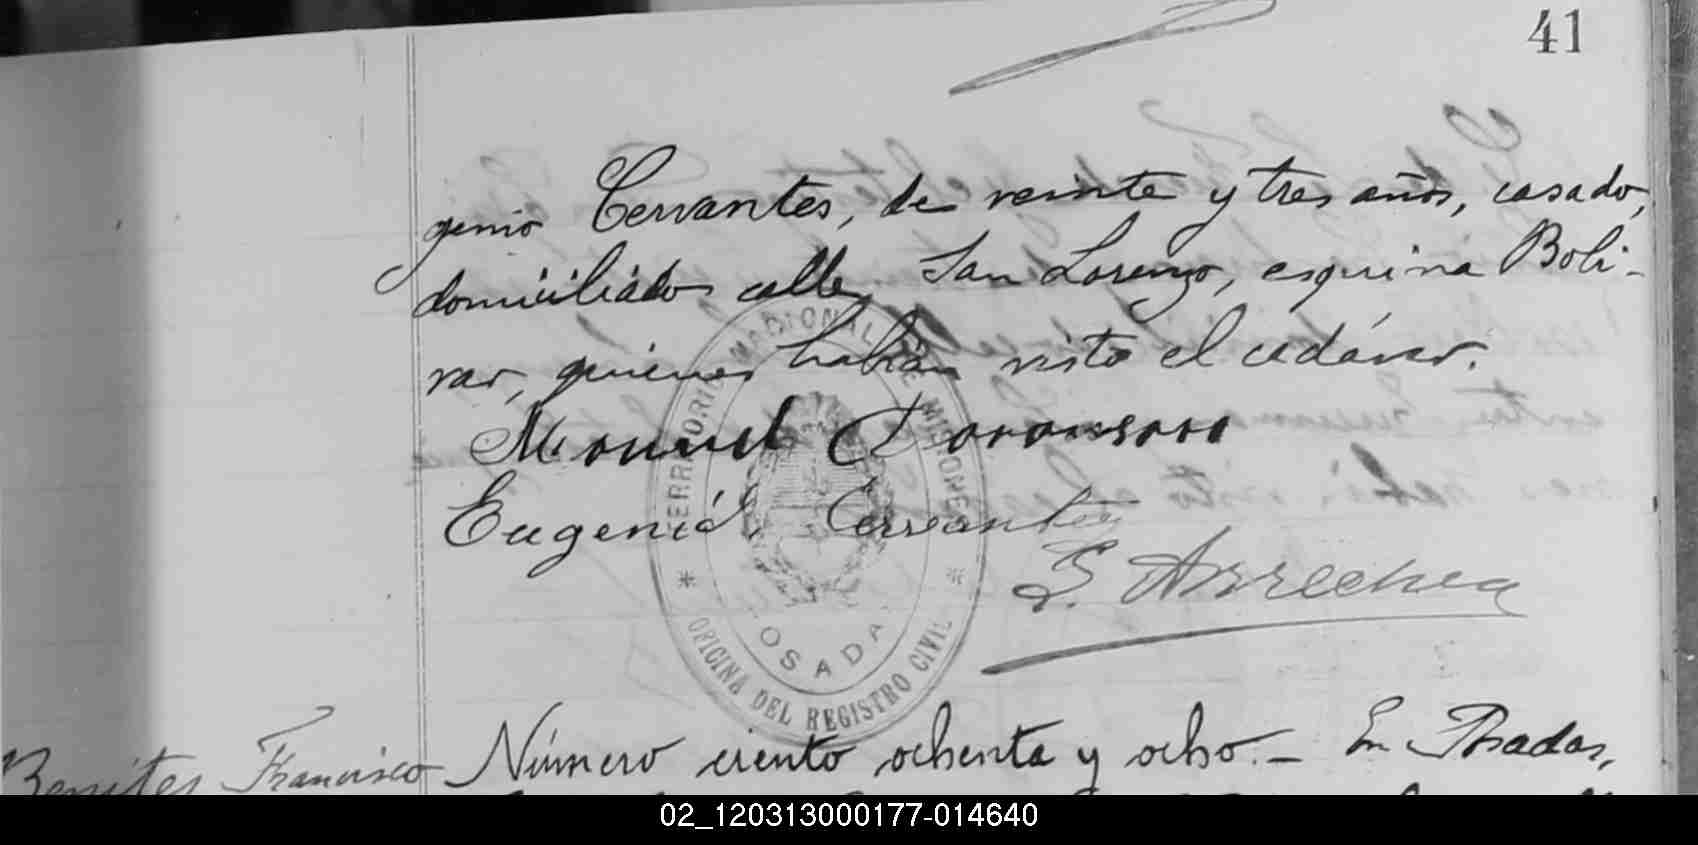 41
genio Cervantes, de veinte y tres años, casado,
domiciliados calle San Lorenzo, esquina Boli-
var, quienes habían visto el cadáver.
Manuel
Eugenio Cervantes
S. Arrechea
TERRITORIO NACIONAL DE MISIONES
POSADAS
* OFICINA DEL REGISTRO CIVIL *
Benites Francisco
Número ciento ochenta y ocho.- En Posadas,
02_120313000177-014640